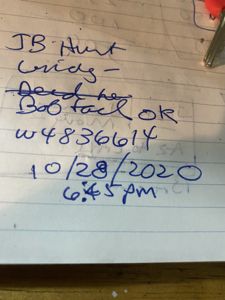 JB Hunt
Bob tail OK
W4836614
10/28/2020
6:45 pm